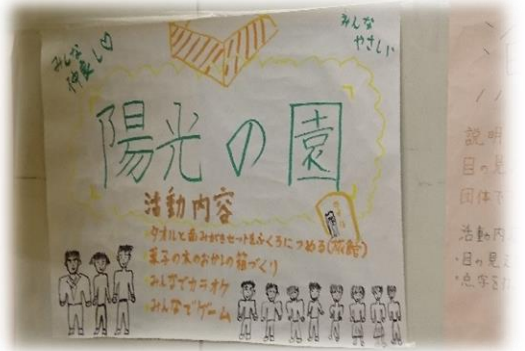 みんな
仲良し♡
みんな
やさしい
陽光の園
活動内容
・タオルと歯みがきセットをふくろにつめる(袋詰)
菓子の木のおかしの箱づくり
・みんなでカラオケ
・みんなでゲーム
説明
目の見
団体で
活動内
・目の見
・点字を